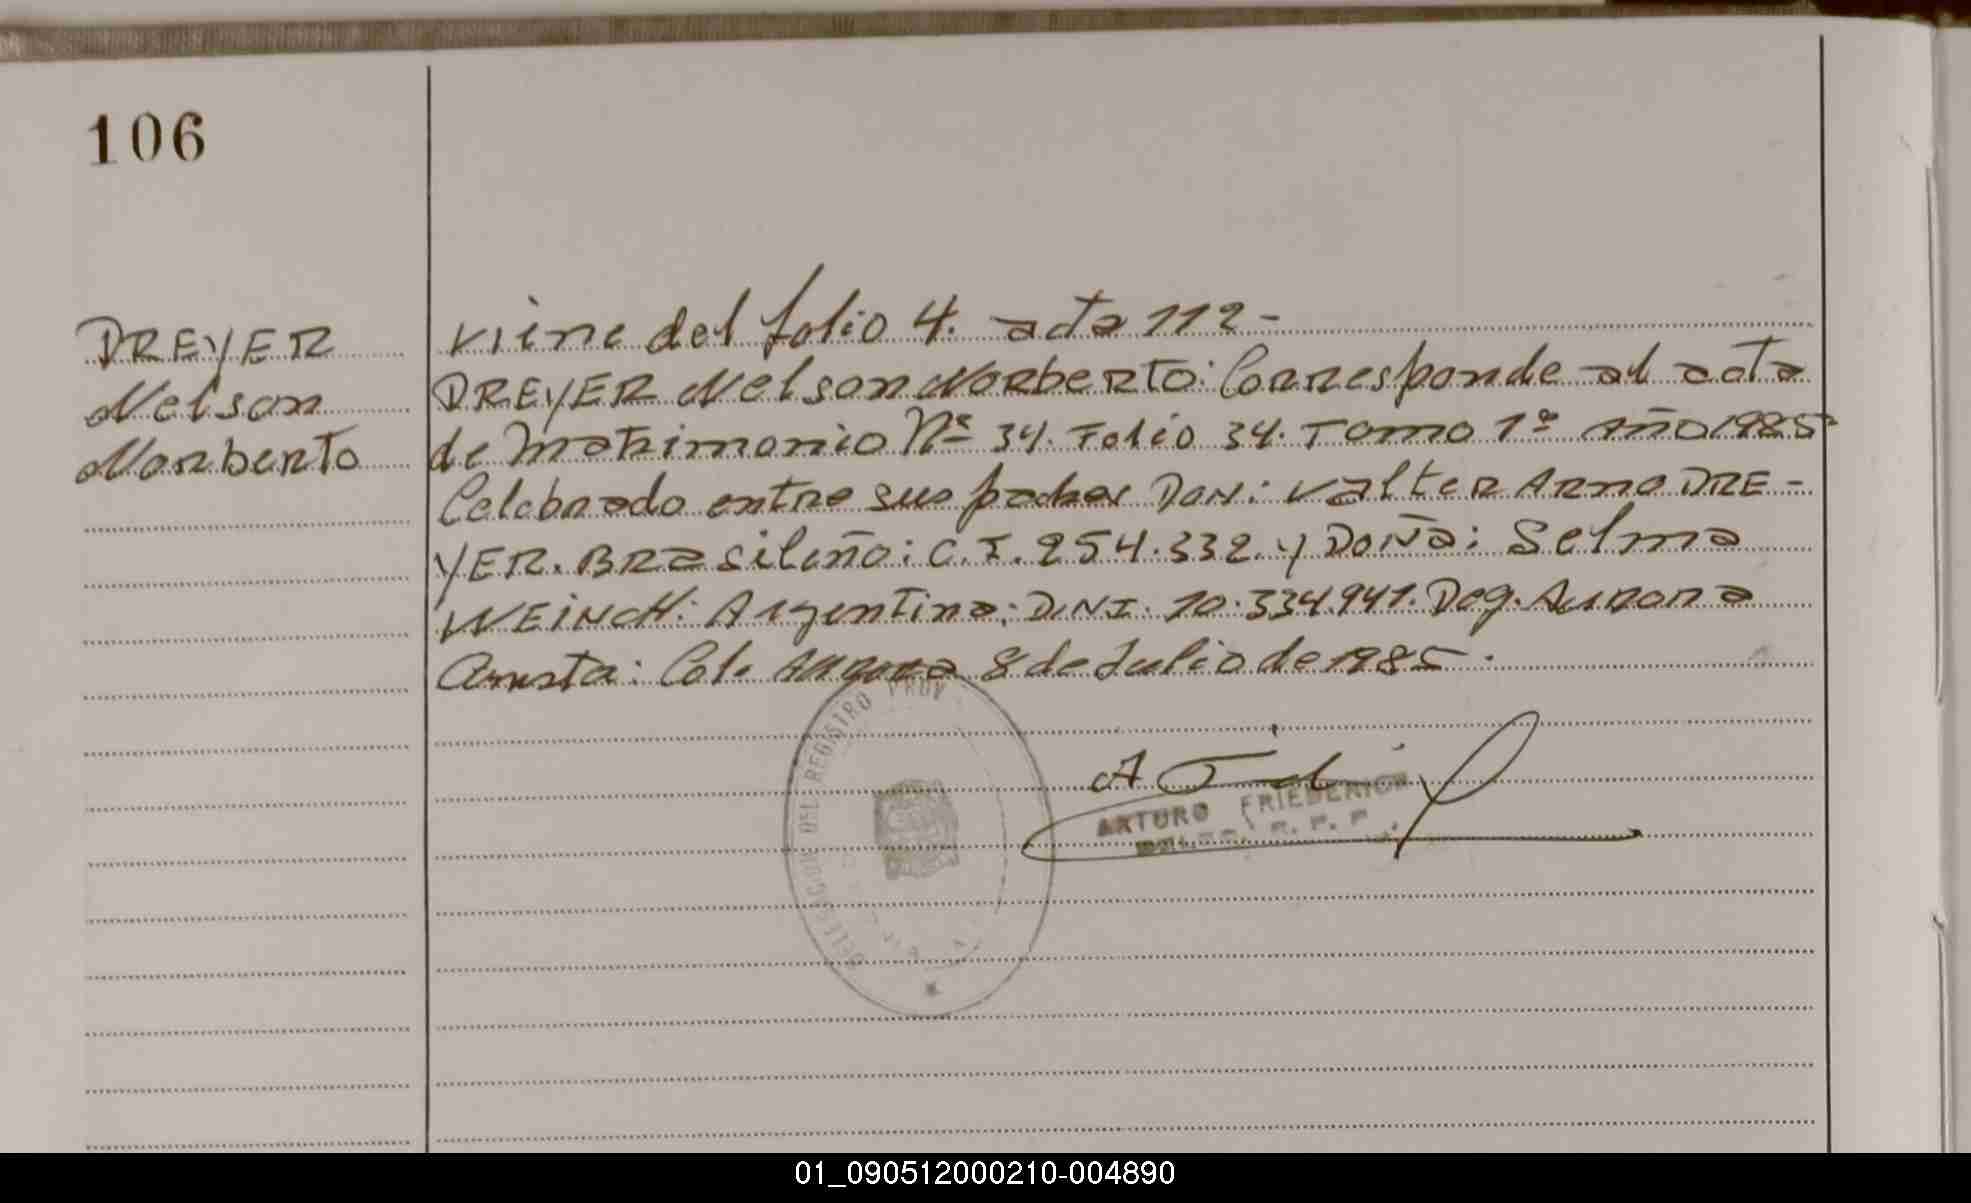 106
DREYER
Nelson
Norberto
Viene del folio 4. acta 112-
DREYER Nelson Norberto: Corresponde al acta
de Matrimonio Nº 34. Folio 34. Tomo 1º Año 1985
Celebrado entre sus padres DON: Valter Arno DRE-
YER. BRasileño: C.I. 254.332. y DOÑa: Selma
WEINCH: Argentina: D.N.I. 10.334.941. Deg. Aurora
Consta: Col. Aurora 8 de Julio de 1985.
DELEGACION DEL REGISTRO PROV
ARTURO FRIEDERICH
01_090512000210-004890